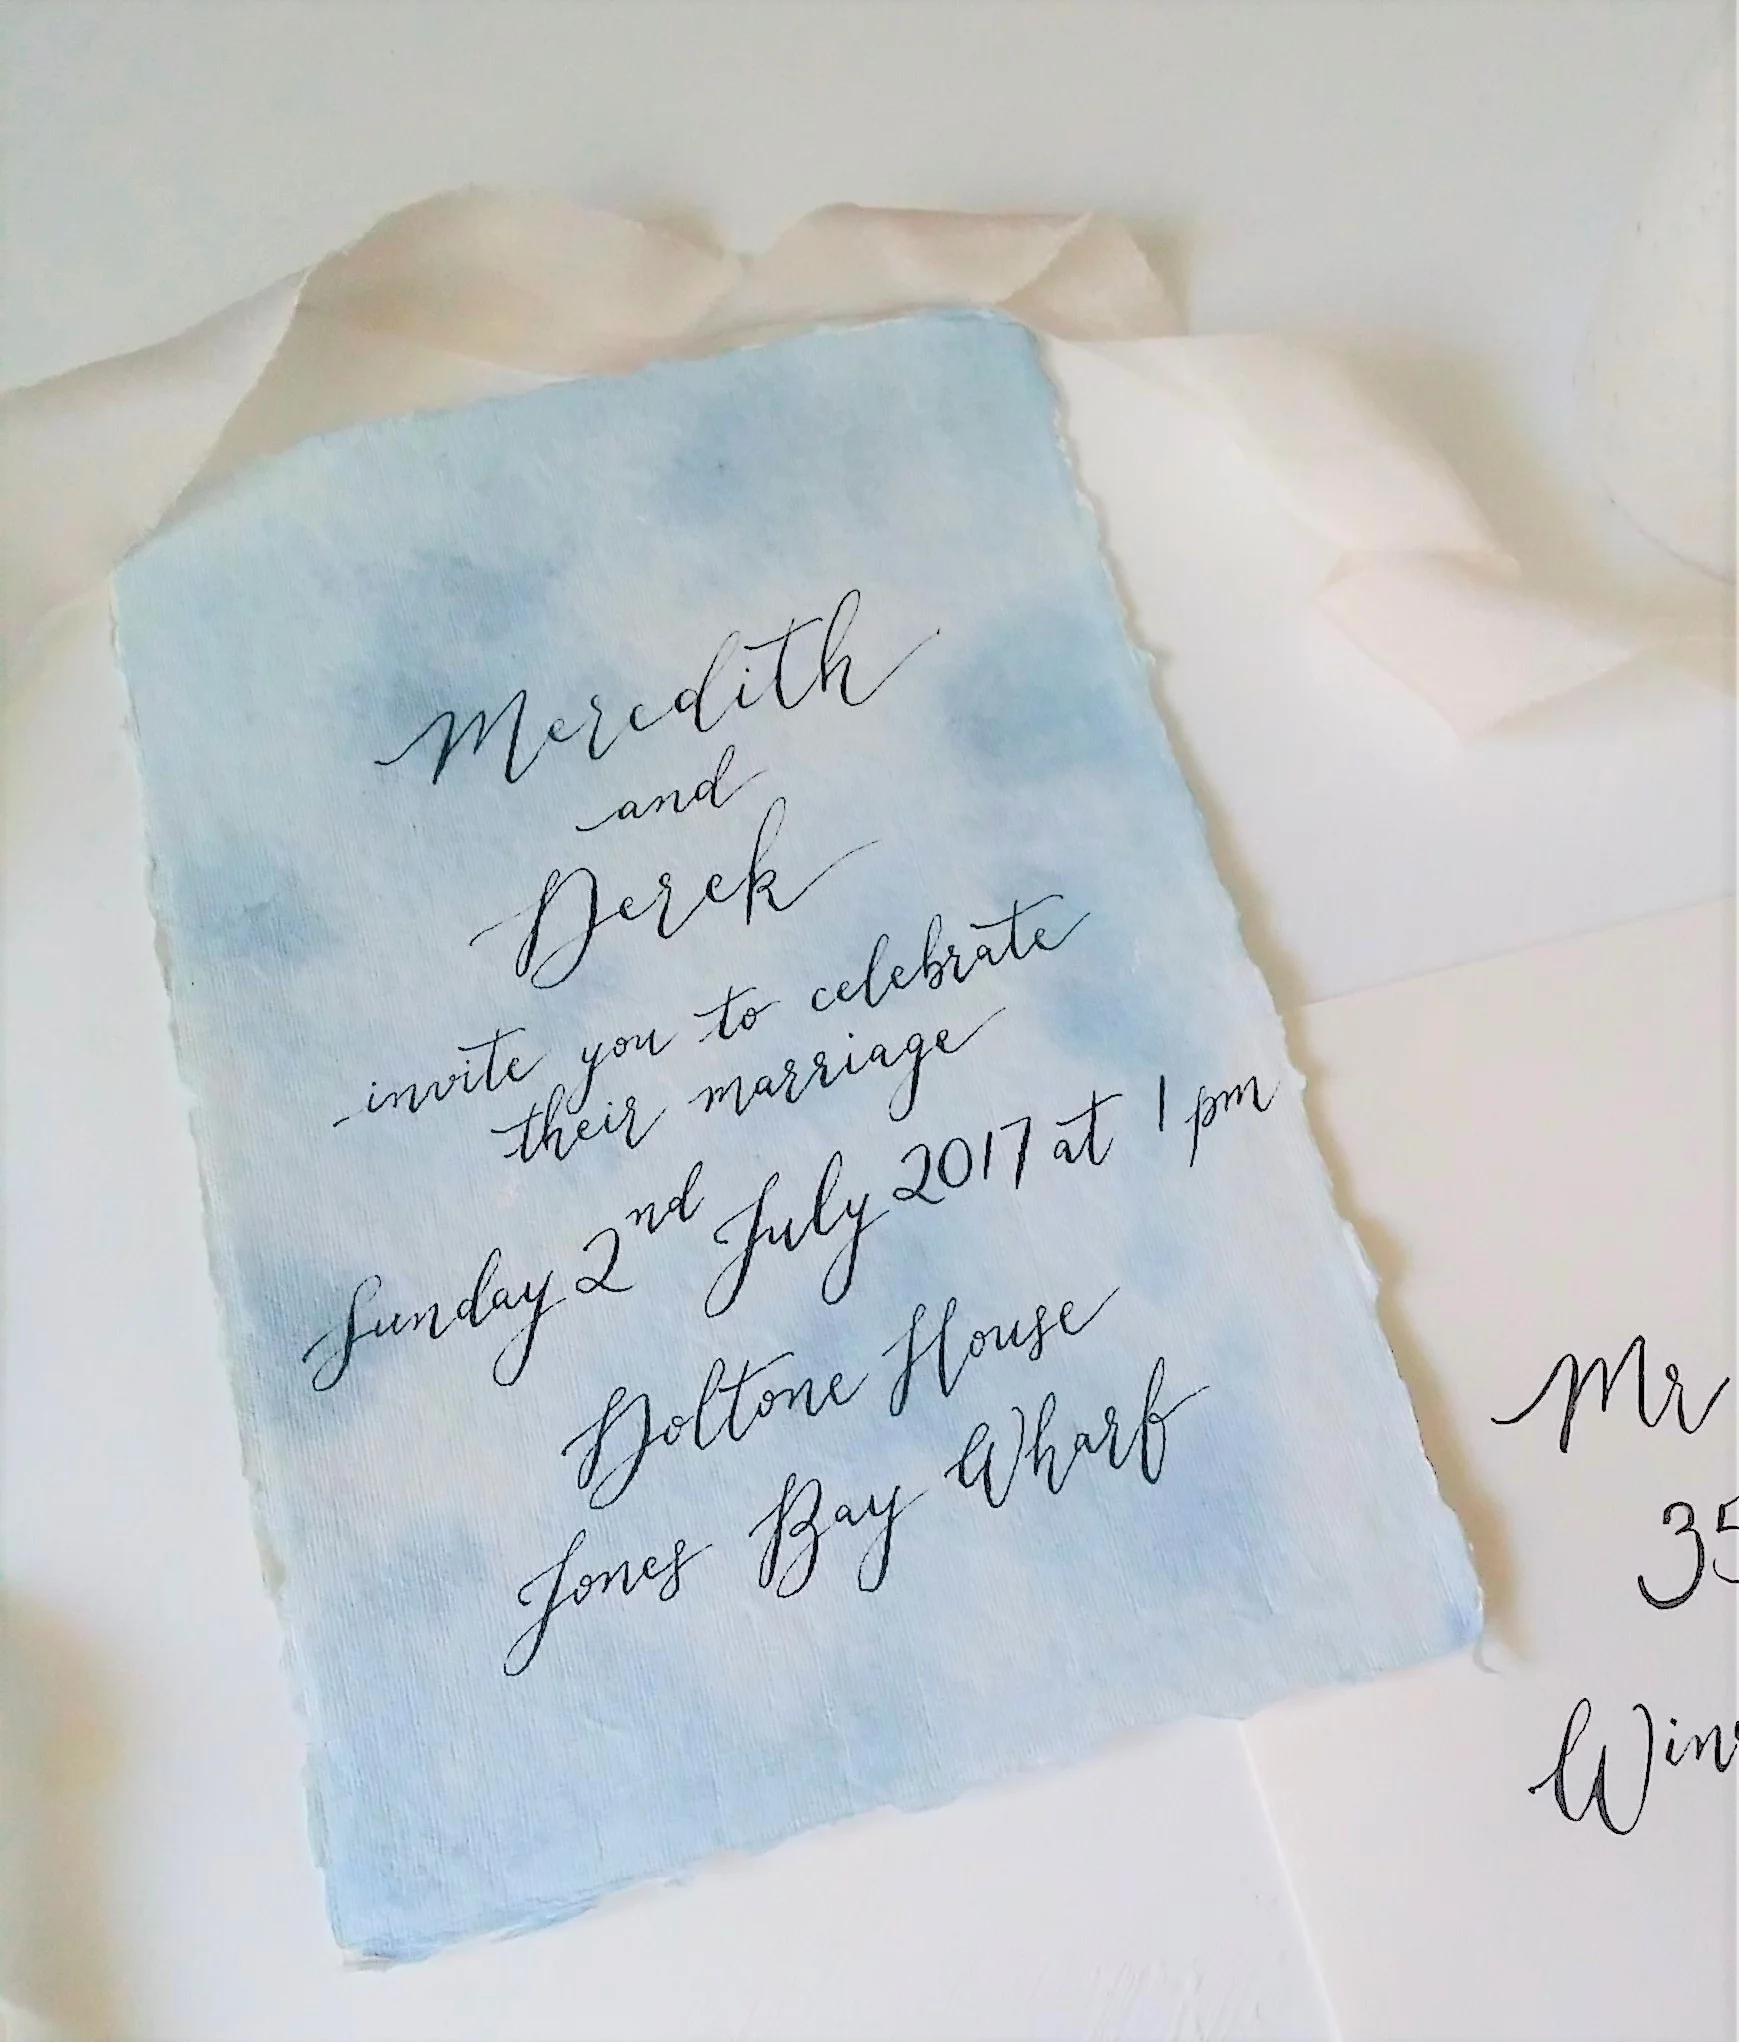 Meredith
and
Derek
invite you to celebrate
their marriage
Sunday 2nd July 2017 at 1 pm
Doltone House
Jones Bay Wharf
Mr
35